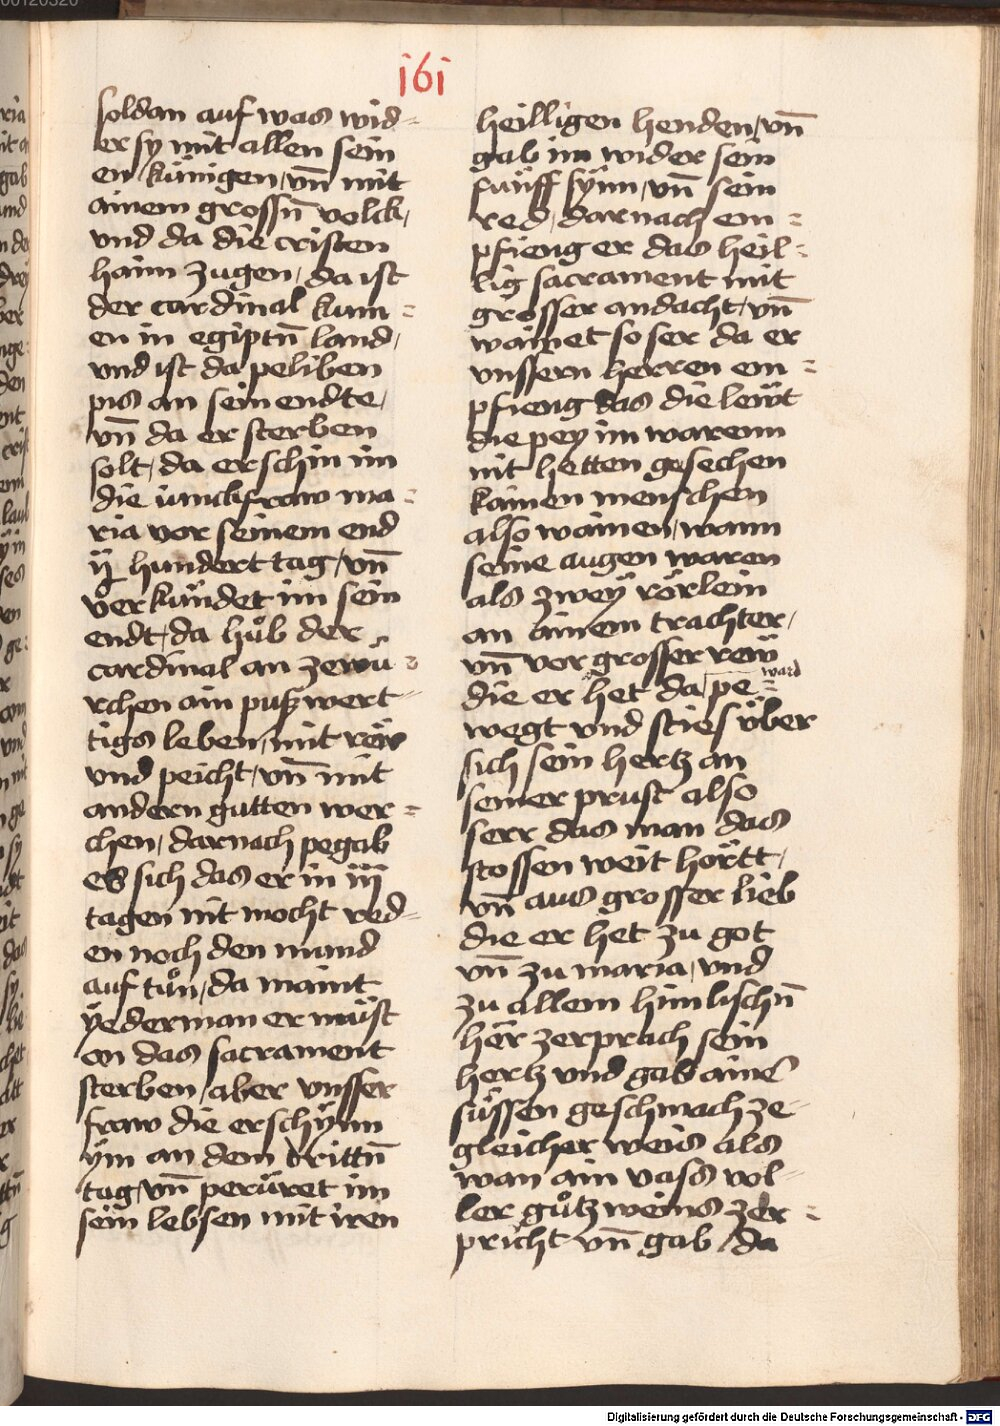 161
soldan auf was wid-
er sy mit allen sein
en künigen, vn̄ mit
ainem grossn̄ volck,
vnd da die cristen
haim zugen, da ist
der cardinal kum-
en in egiptn̄ land,
vnd ist da peliben
pis an sein endte,
vn̄ da er sterben
solt, da erschin im
die iunckfraw ma-
ria vor seinem end
ij hundert tag, vn̄
verkündet im sein
endt, da hůb der
cardinal an zewü-
rchen ain pußwert-
tigs leben, mit röw
und peicht, vn̄ mit
andern gutten wer-
chen, darnach pegab
es sich das er in iij
tagen nit mocht red-
en noch den mund
auf tůn, da maint
yederman er müst
on das sacrament
sterben, aber vnsser
fraw die erschynn
ym an dem drittn̄
tag, vn̄ perüret im
sein lebsen mit iren
heilligen henden, vn̄
gab im wider sein
fünff synn, vn̄ sein
red, darnach em-
pfieng er das heil-
lig sacrament mit
grosser andacht, vn̄
wainet so ser da er
vnssern herren em-
pfieng das die lewt
die pey im warenn
nit hetten gesechen
kainen menschen
also wainen, wann
seine augen waren
als zwey rörlein
an ainem trachter,
vn̄ vor grosser rew
die er het da ward pe-
wegt vnd sties über
sich sein hertz an
seiner prust also
serr das man das
stossen weit hörtt,
vn̄ aus grosser lieb
die er het zu got
vn̄ zu maria, vnd
zu allem himlischn̄
her zerprach sein
hertz vnd gab ainē
süssen geschmach ze-
gleicher weis als
wan ain vass vol-
ler gůtz weins zer-
pricht vn̄ gab, da
Digitalisierung gefördert durch die Deutsche Forschungsgemeinschaft - DFG